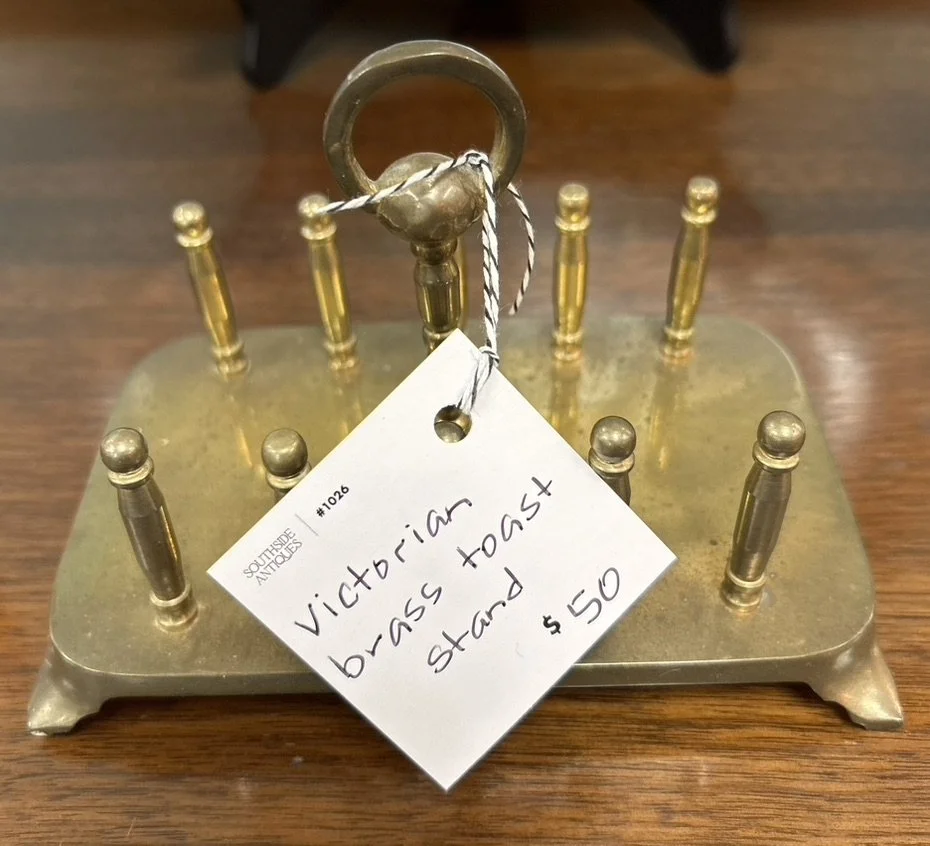 SOUTHSIDE
ANTIQUES
#1026
Victorian
brass toast
stand
$50